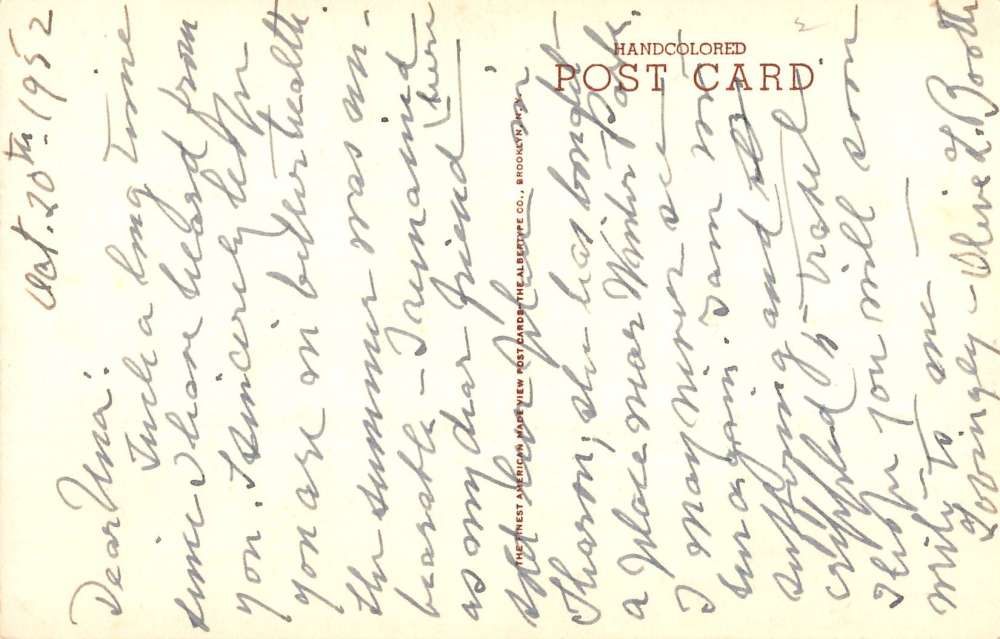 Oct. 20th - 1952
Dear Una:
Such a long time
since I have heard from
you. I sincerely hope
you are in better health.
The summer was un-
bearable - I remained here
as my dear friend
sold her place in
Sharon; she has bought
a place near Winter Park.
I may never see it
imagine. I am not
suffering and
crippled, - travel
I hope you will soon
write to me -
Lovingly - Olive L. Booth
HANDCOLORED
POST CARD
THE FINEST AMERICAN MADE VIEW POST CARDS-THE ALBERTYPE CO., BROOKLYN, N.Y.